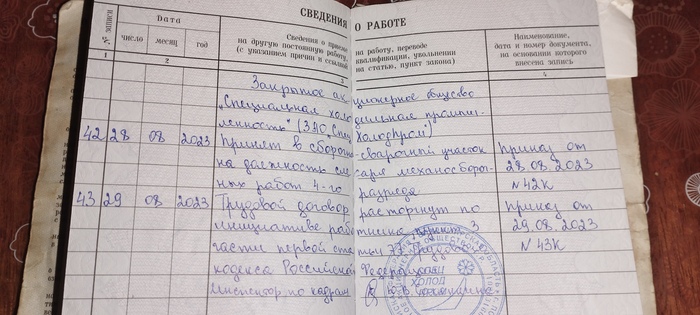 СВЕДЕНИЯ О РАБОТЕ
№ записи
Дата
число месяц год
Сведения о приеме на работу, переводе
на другую постоянную работу, квалификации, увольнении
(с указанием причин и ссылкой на статью, пункт закона)
Наименование,
дата и номер документа,
на основании которого
внесена запись
1 2 3 4
Закрытое акционерное общество
"Специальная холодильная промыш-
ленность" (ЗАО "СпецХолодПром")
42 28 08 2023 Принят в сборочно-сварочный участок Приказ от
на должность слесаря механосбороч- 28.08.2023
ных работ 4-го разряда N 42К
43 29 08 2023 Трудовой договор расторгнут по Приказ от
инициативе работника, 29.08.2023
части первой статьи 77 Трудового N 43К
кодекса Российской Федерации
Инспектор по кадрам
ХОЛОД